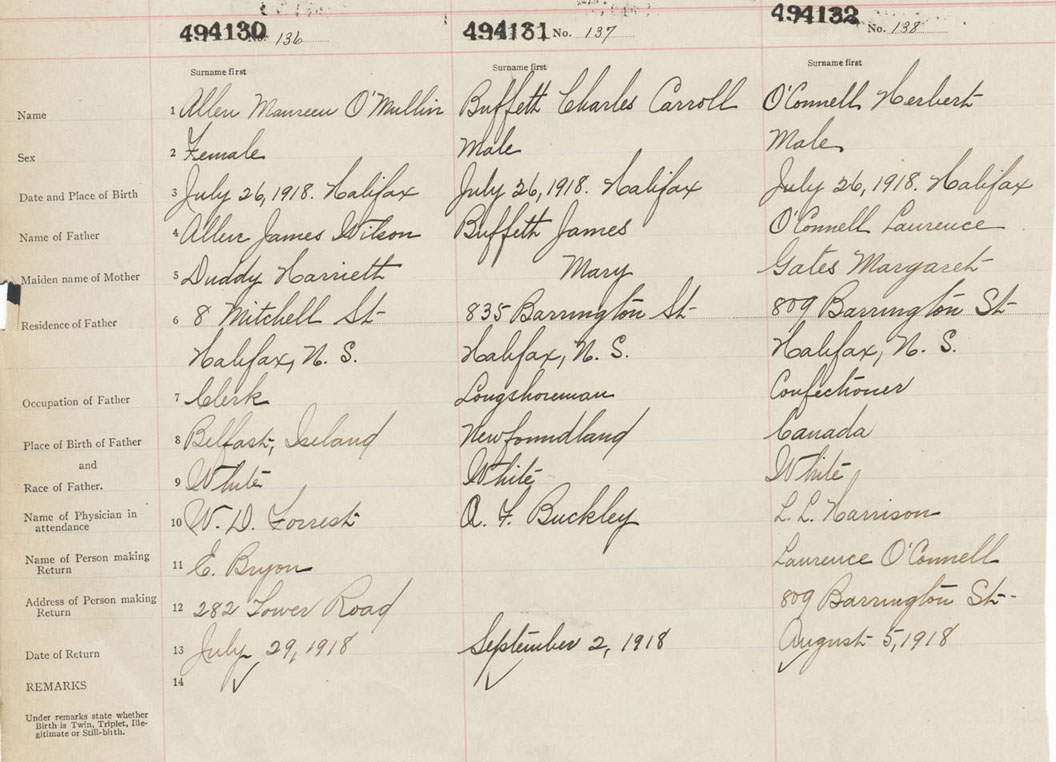 494130 No. 136 494131 No. 137 494132 No. 138
Surname first Surname first Surname first
Name 1 Allen Maureen O'Mullin Buffett Charles Carroll O'Connell Herbert
Sex 2 Female Male Male
Date and Place of Birth 3 July 26, 1918. Halifax July 26, 1918. Halifax July 26, 1918. Halifax
Name of Father 4 Allen James Wilson Buffett James O'Connell Laurence
Maiden name of Mother 5 Duddy Harriett Mary Gates Margaret
Residence of Father 6 8 Mitchell St 835 Barrington St 809 Barrington St
Halifax, N. S. Halifax, N. S. Halifax, N. S.
Occupation of Father 7 Clerk Longshoreman Confectioner
Place of Birth of Father 8 Belfast, Ireland Newfoundland Canada
and
Race of Father. 9 White White White
Name of Physician in
attendance 10 W. D. Forrest A. F. Buckley L. L. Harrison
Name of Person making
Return 11 E. Bryon Laurence O'Connell
Address of Person making
Return 12 282 Tower Road 809 Barrington St-
Date of Return 13 July 29, 1918 September 2, 1918 August 5, 1918
REMARKS 14
Under remarks state whether
Birth is Twin, Triplet, Ille-
gitimate or Still-birth.